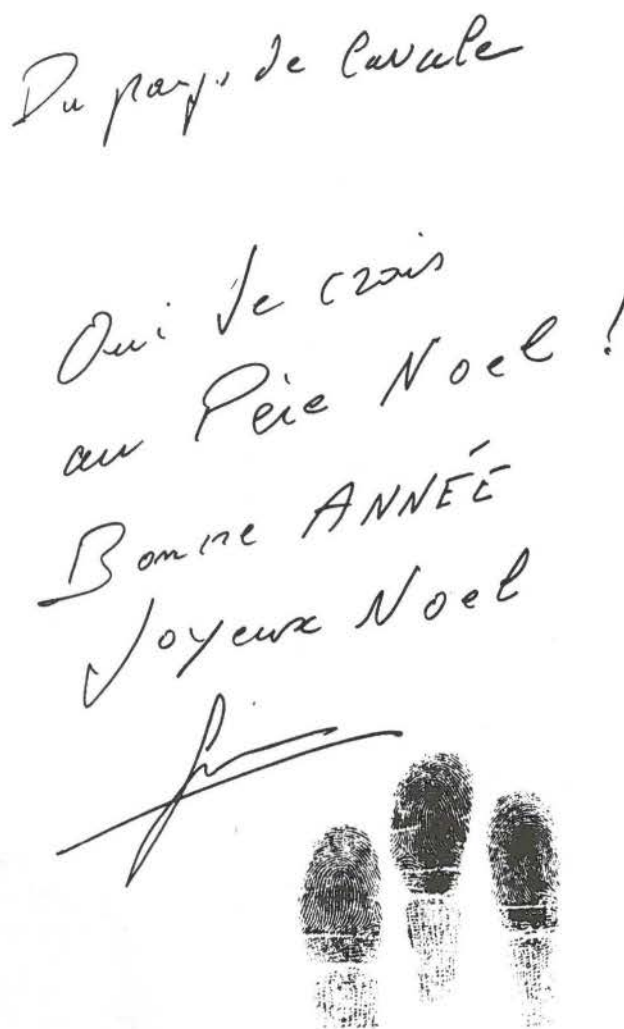 Du pays de Cavale
Oui Je crois
au Père Noel !
Bonne ANNÉE
Joyeux Noel